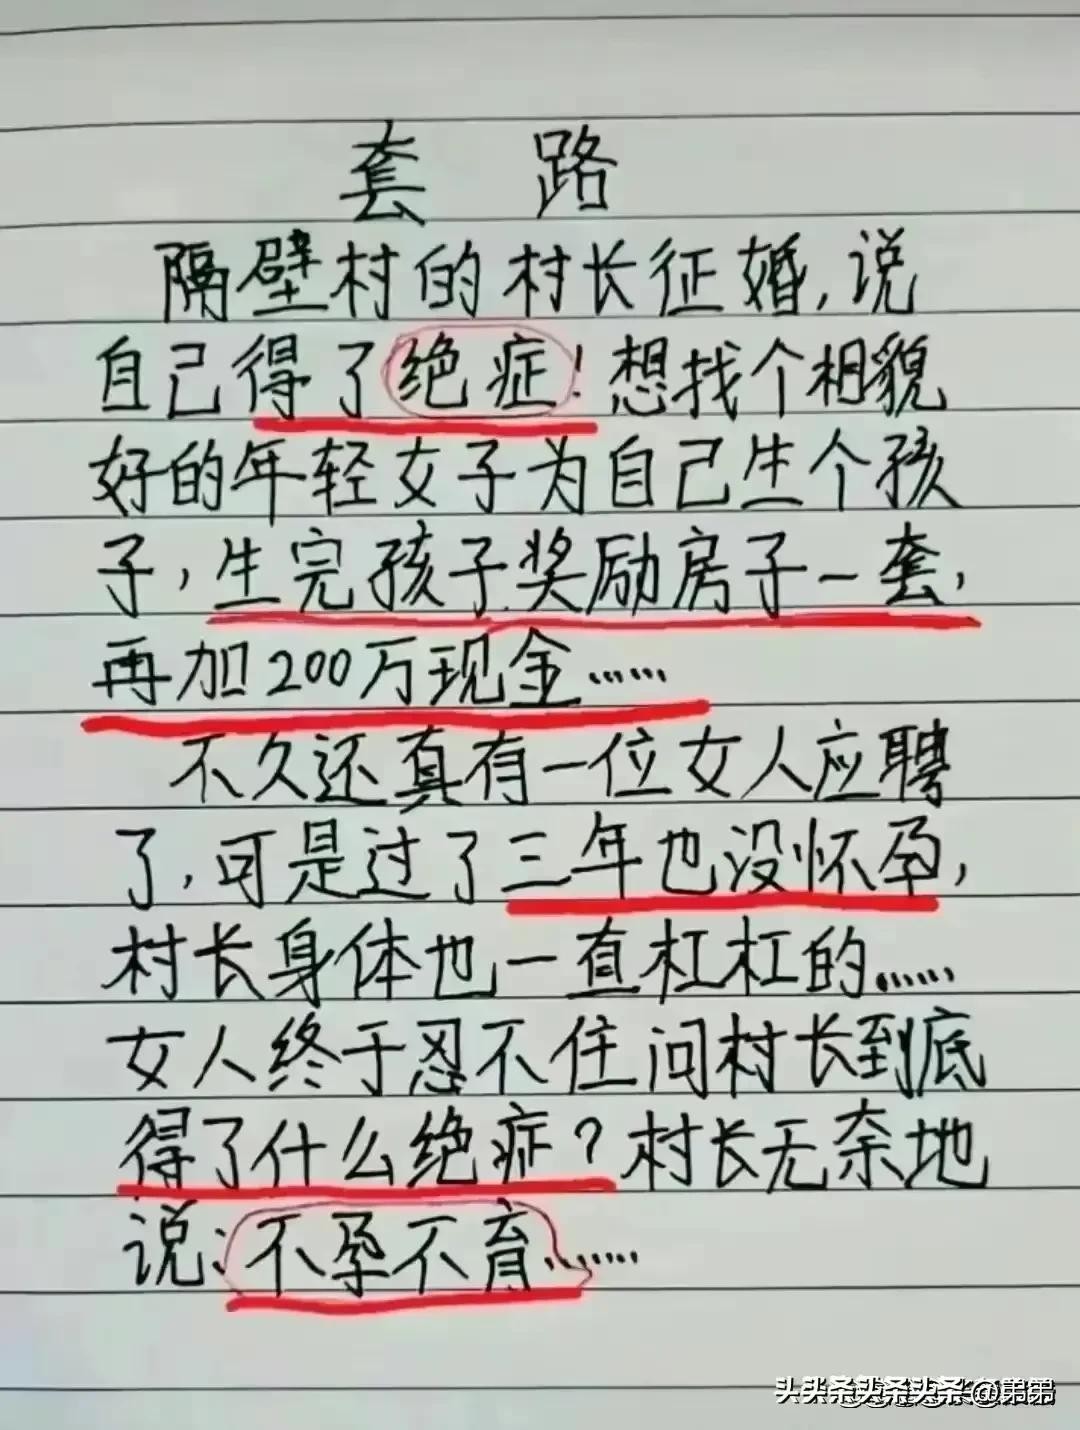 套路
隔壁村的村长征婚,说
自己得了绝症!想找个相貌
好的年轻女子为自己生个孩
子,生完孩子奖励房子一套,
再加200万现金……
不久还真有一位女人应聘
了,可是过了三年也没怀孕,
村长身体也一直杠杠的……
女人终于忍不住问村长到底
得了什么绝症?村长无奈地
说:不孕不育……